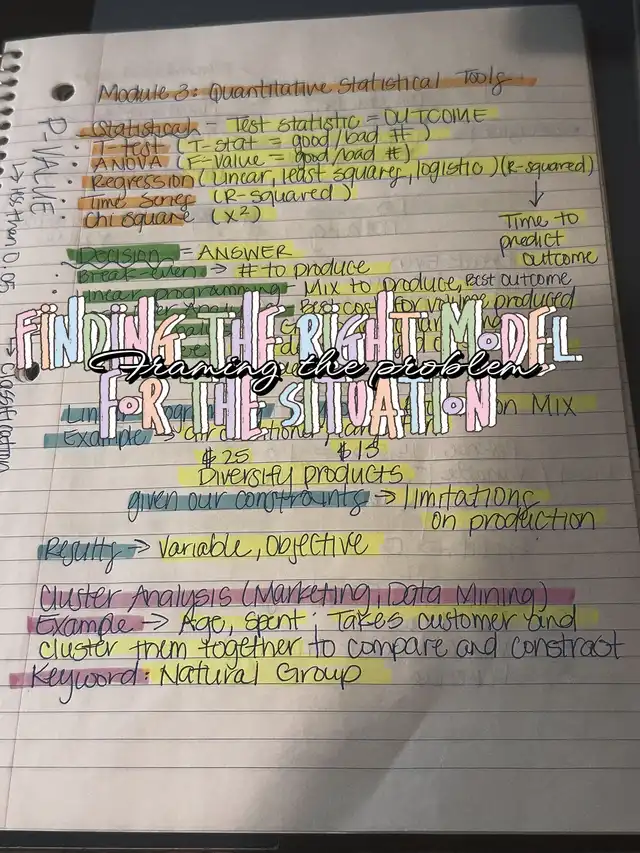 Module 3: Quantitative Statistical Tools
Statistical = Test statistic = OUTCOME
T-test (T-stat = good/bad #)
ANOVA (F-value = good/bad #)
Regression (linear, least squares, logistic) (R-squared)
Time Series (R-squared)
Chi square (X²)
Time to
predict
outcome
P-VALUE
less than 0.05
Decision = ANSWER
Break-even → # to produce
Linear programming - Mix to produce, Best outcome
Best cost for volume produced
FINDING THE RIGHT MODEL
Framing the problem
FOR THE SITUATION
on Mix
Example →
$25 $15
Diversify products
given our constraints → limitations
on production
Results → Variable, Objective
Cluster Analysis (Marketing, Data Mining)
Example → Age, spent: Takes customer and
cluster them together to compare and constrast
Keyword: Natural Group